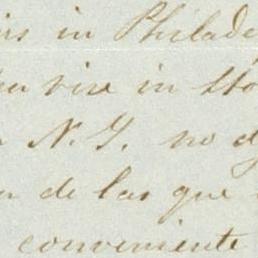 in Philade
vive in
N. Y. no d
de las que
conveniente